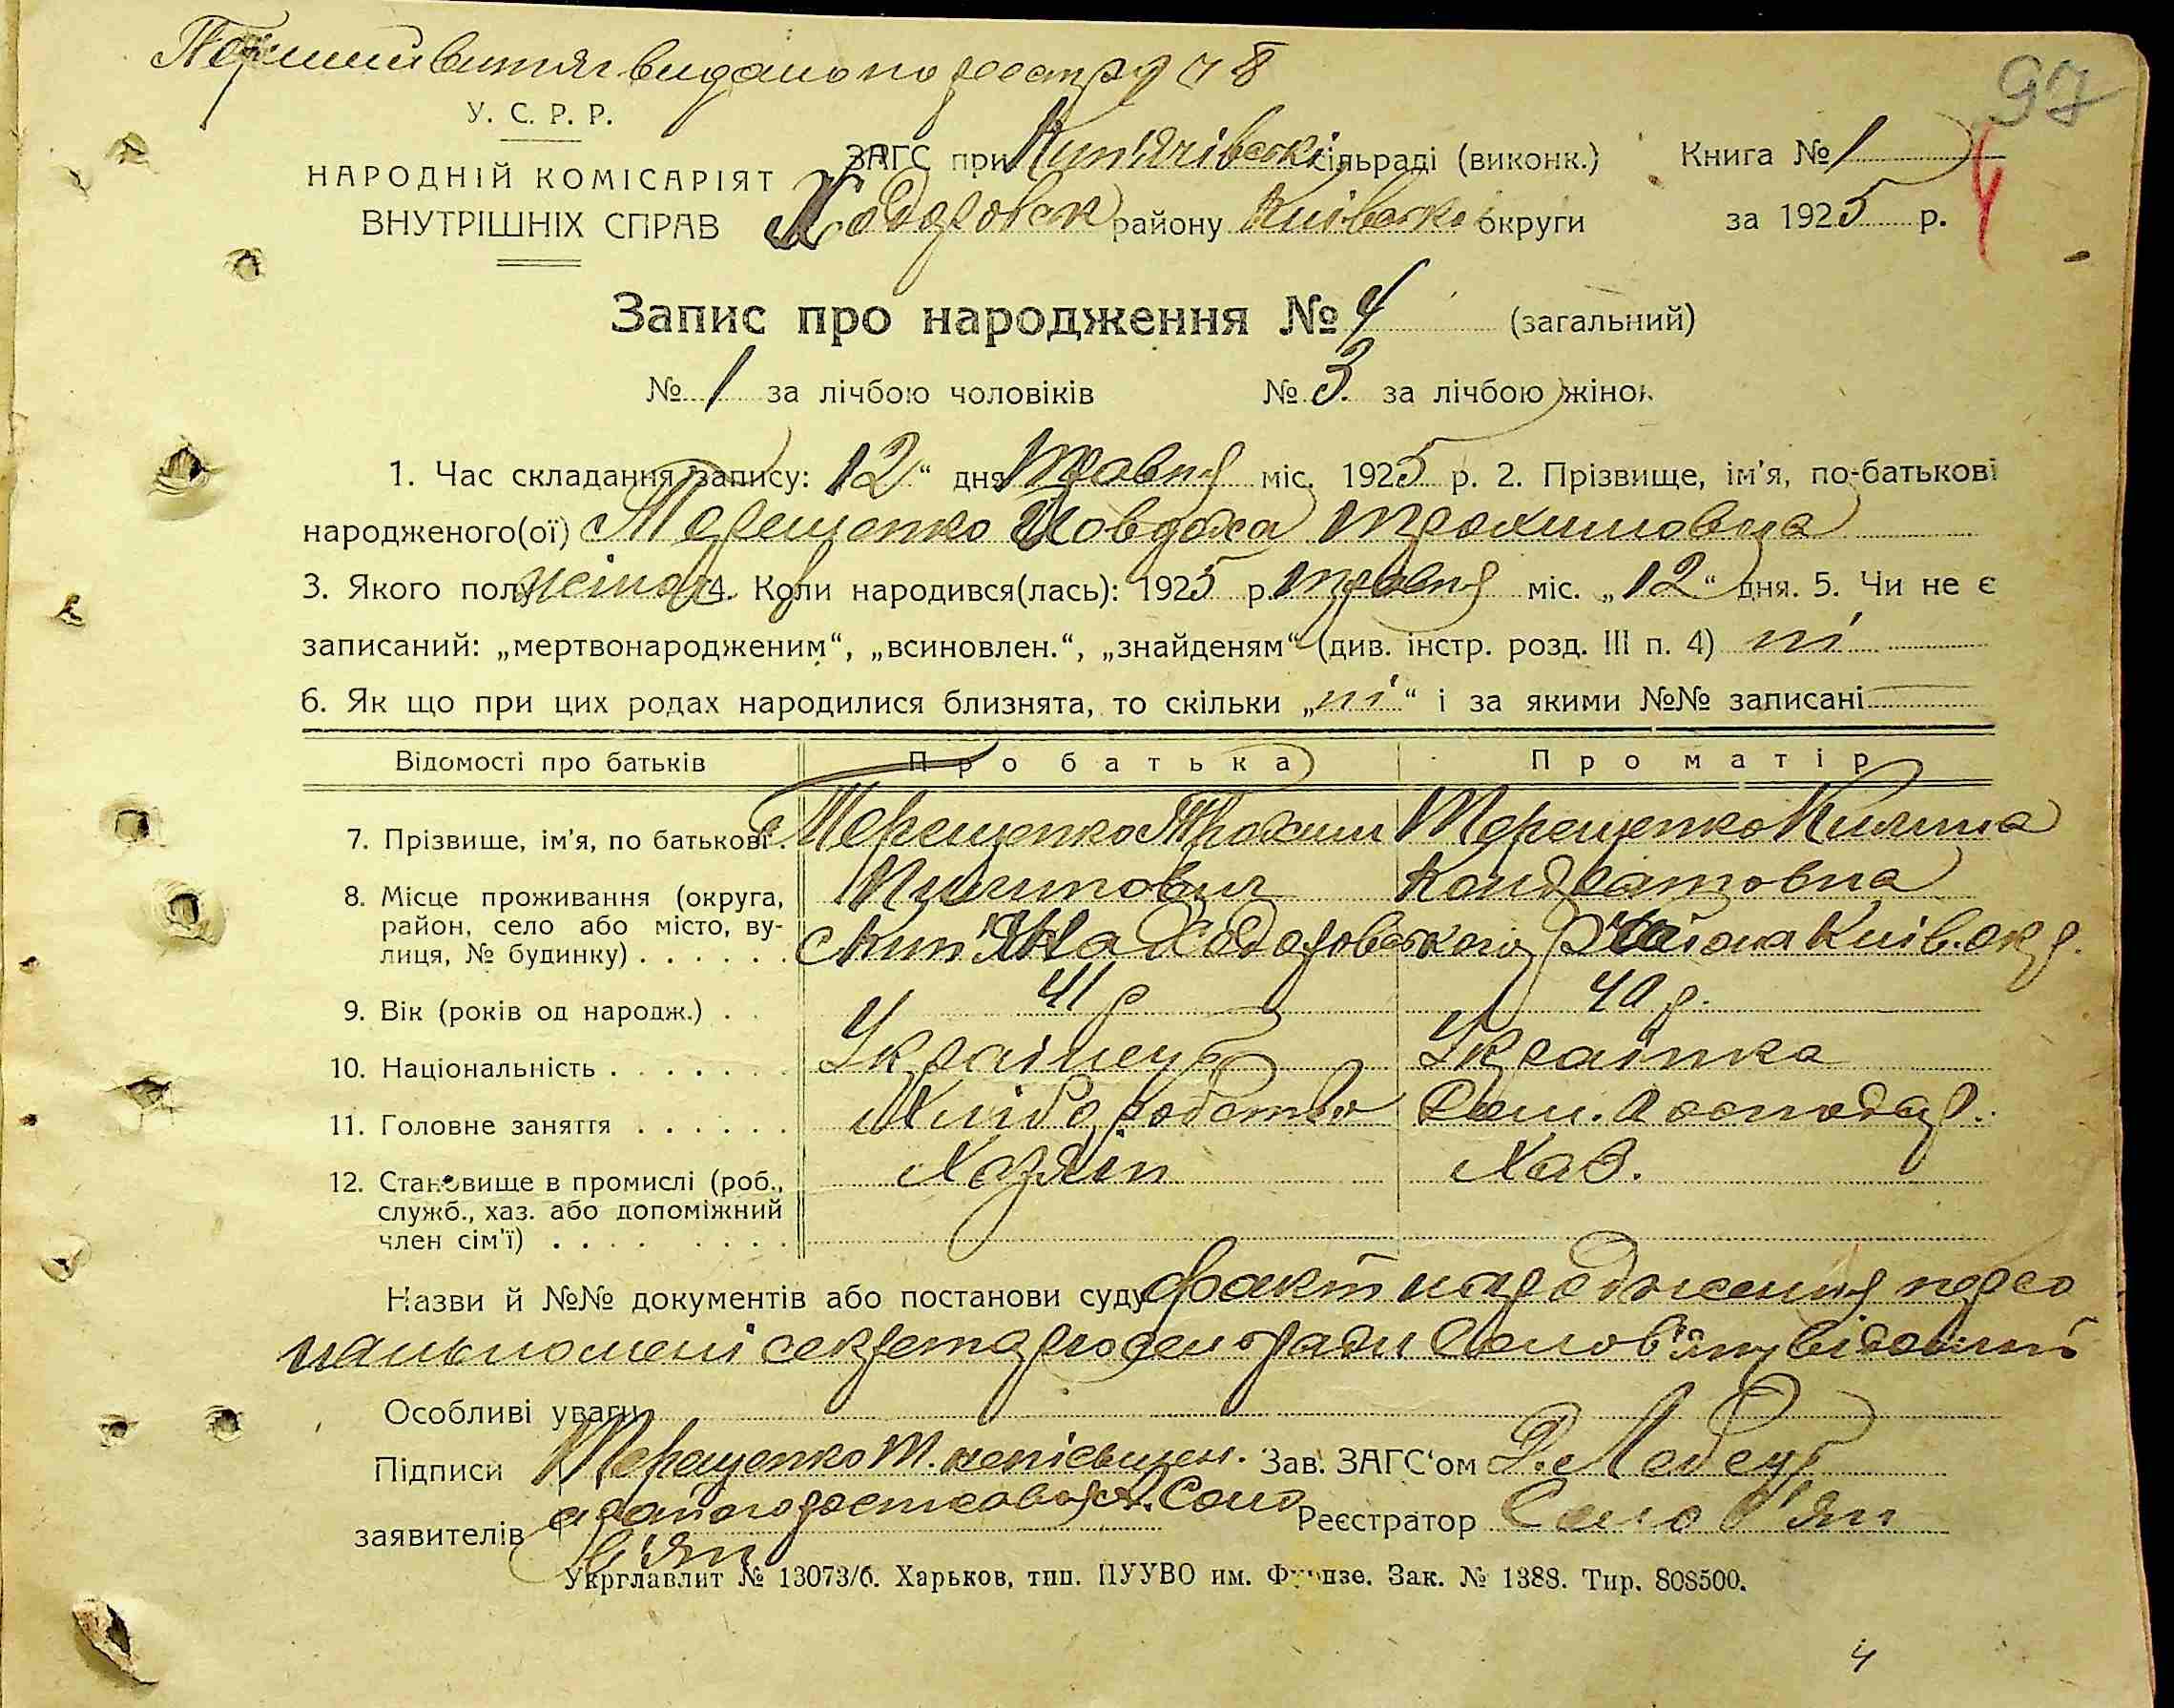 Перший витяг видано по реєстру ч 8
97
У. С. Р. Р.
НАРОДНІЙ КОМІСАРІЯТ
ВНУТРІШНІХ СПРАВ
ЗАГС при Куп'ячівські сільраді (виконк.) Книга № 1
Ходоровск району Київські округи за 1925 р.
Запис про народження № 4 (загальний)
№ 1 за лічбою чоловіків № 3 за лічбою жінок
1. Час складання запису: 12“ дня Травня міс. 1925 р. 2. Прізвище, ім'я, по-батькові
народженого(ої) Терещенко Явдоха Трохимовна
3. Якого полу жіноч. 4. Коли народився(лась): 1925 р. травня міс. „12“ дня. 5. Чи не є
записаний: „мертвонародженим“, „всиновлен.“, „знайденям“ (див. інстр. розд. III п. 4) ні
6. Як що при цих родах народилися близнята, то скільки „ні“ і за якими №№ записані
Відомості про батьків Про батька Про матір
7. Прізвище, ім'я, по батькові. Терещенко Трохим Терещенко Килина
Пилипович Кондратовна
8. Місце проживання (округа,
район, село або місто, ву-
лиця, № будинку) . . . . . . с Ходоровського района Київ. окр.
9. Вік (років од народж.) . . 41 р 40 р.
10. Національність . . . . . . . Українець Українка
11. Головне заняття . . . . . . Хліборобство Дом. господар.
12. Становище в промислі (роб.,
служб., хаз. або допоміжний
член сім'ї) . . . . . . . . Хазяїн Хаз.
Назви й №№ документів або постанови суду факт народження персо
нально мені секретарю сельради Солов'яну відомий
Особливі уваги
Підписи Терещенко Т. неписьмен.
заявителів а за його ростковався Соло
в'ян
Зав. ЗАГС'ом Д. Лебедь
Реєстратор Солов'ян
Укрглавлит № 13073/6. Харьков, тип. ПУУВО им. Фрунзе. Зак. № 1388. Тир. 808500.
4